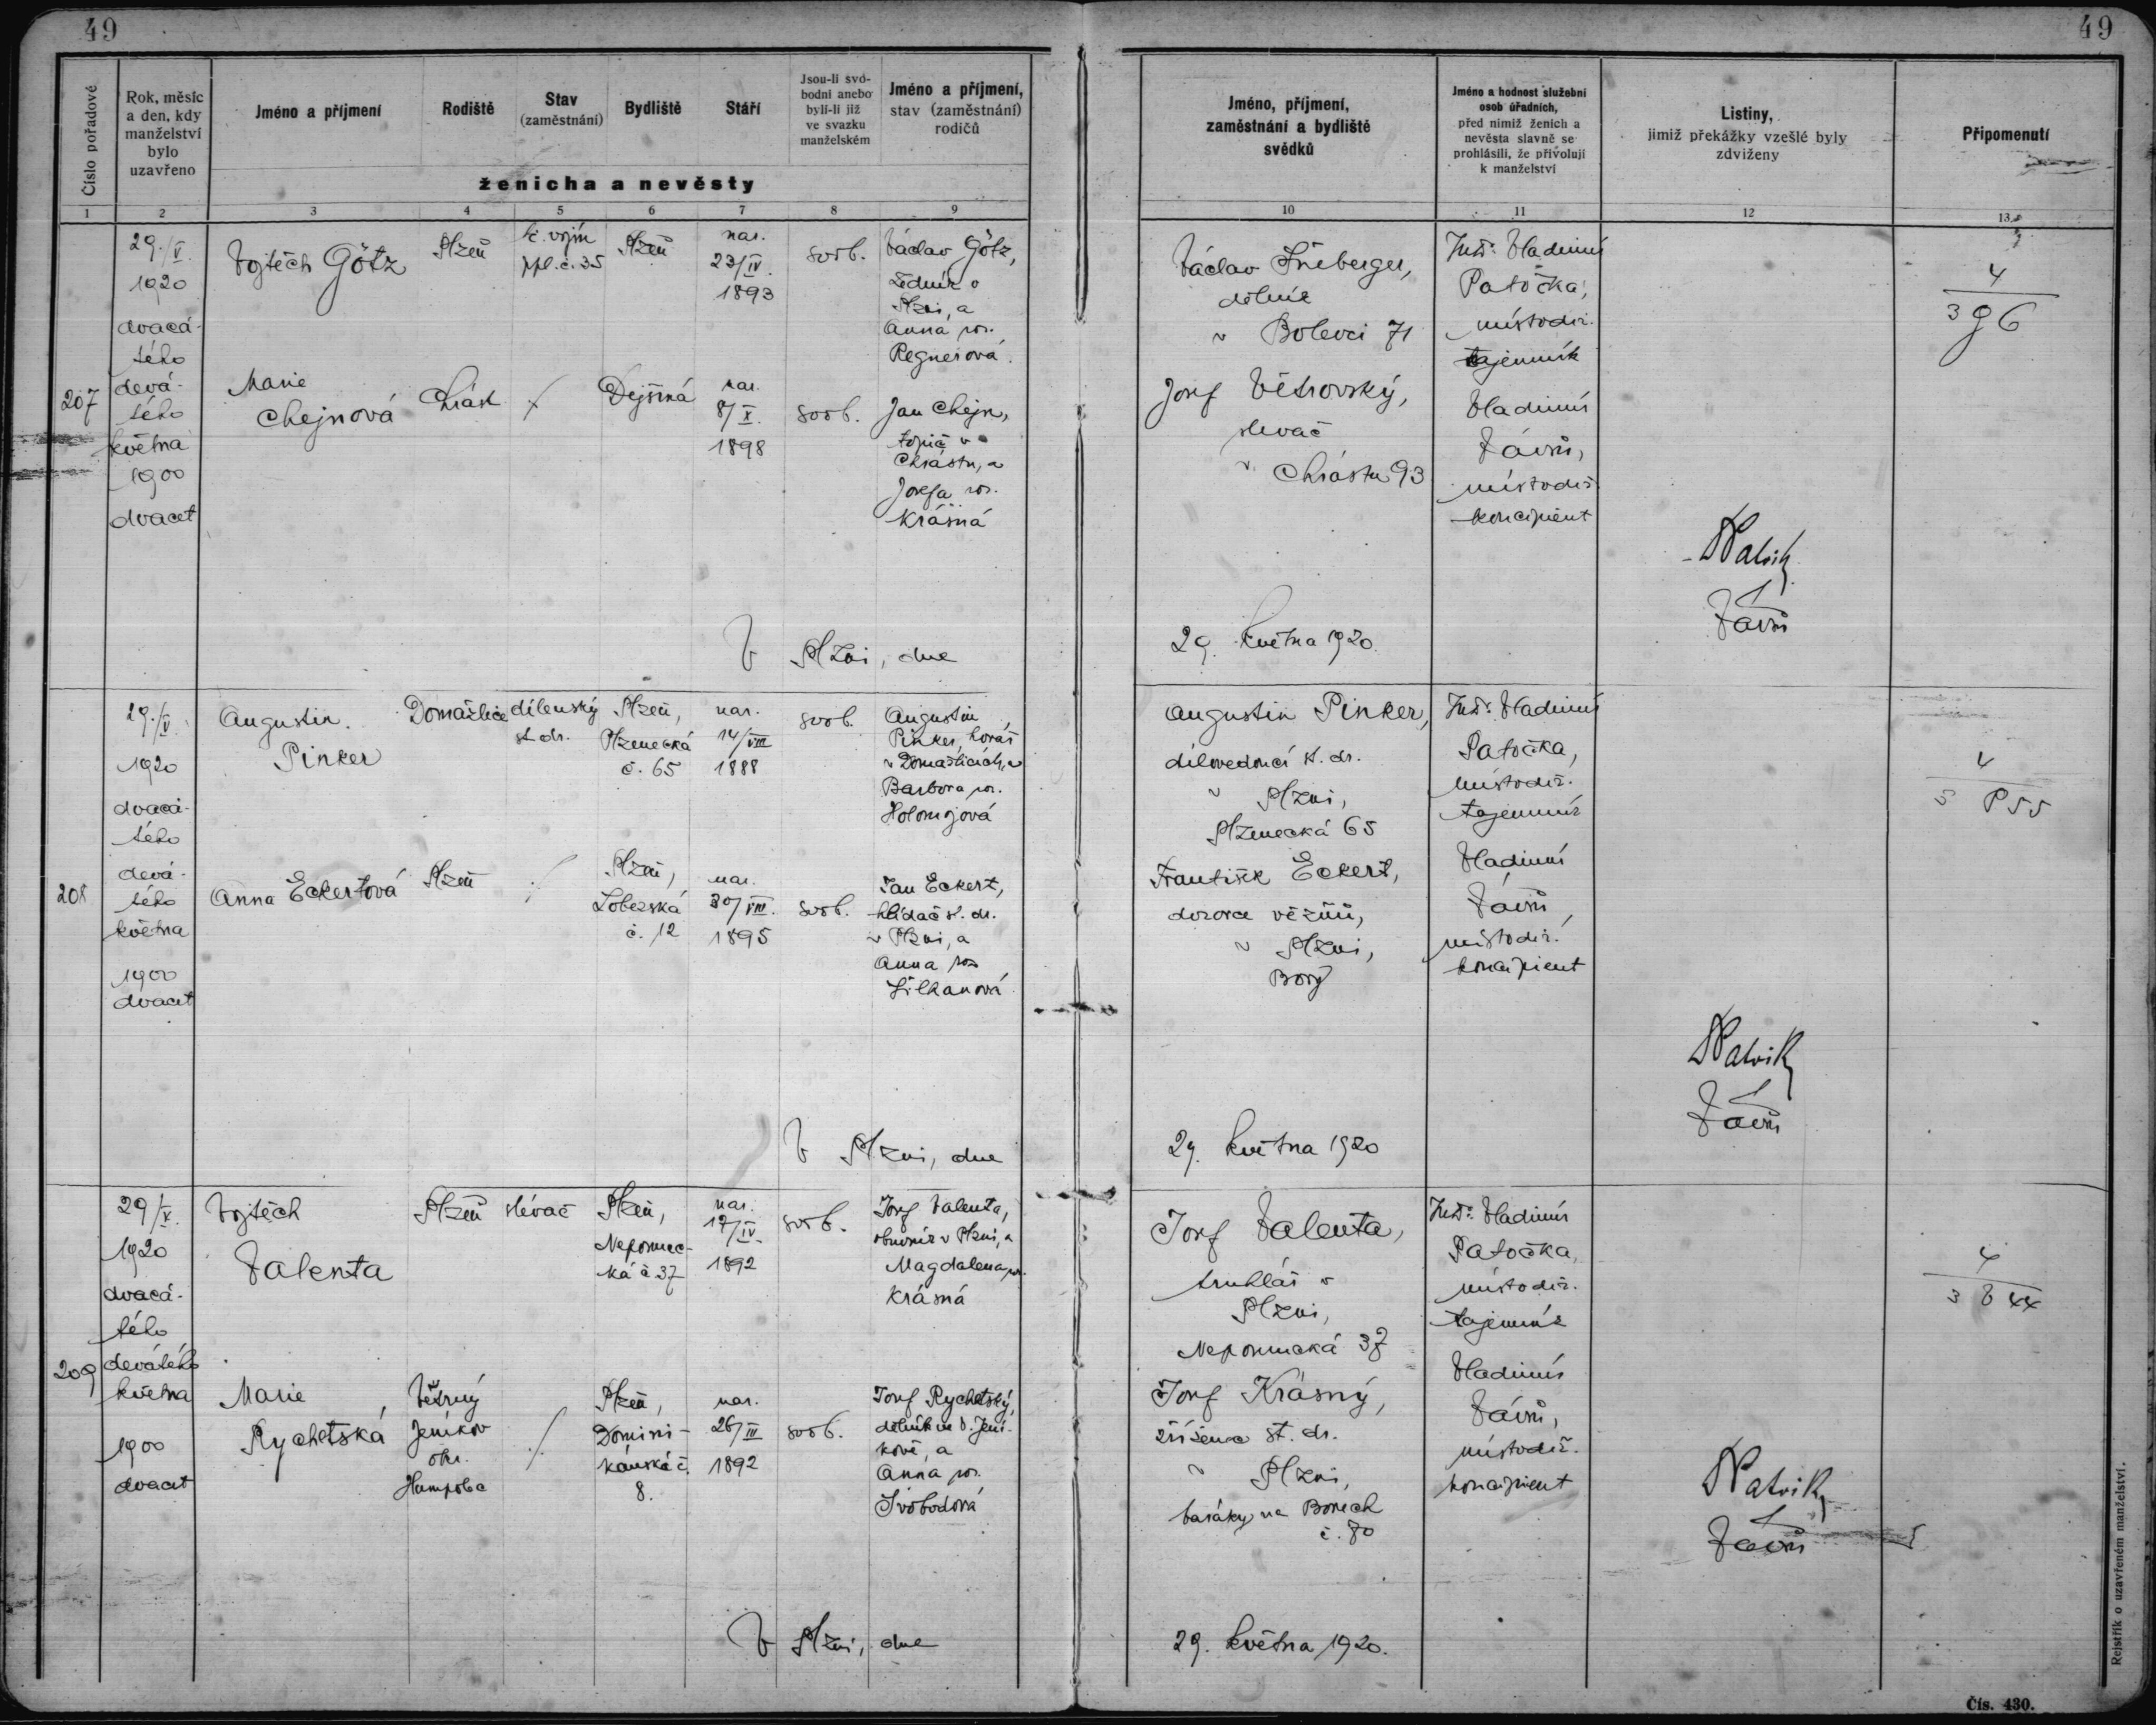 49
49
Číslo pořadové
Rok, měsíc
a den, kdy
manželství
bylo
uzavřeno
Jméno a příjmení
Rodiště
Stav
(zaměstnání)
Bydliště
Stáří
Jsou-li svo-
bodni anebo
byli-li již
ve svazku
manželském
Jméno a příjmení,
stav (zaměstnání)
rodičů
ženicha a nevěsty
Jméno, příjmení,
zaměstnání a bydliště
svědků
Jméno a hodnost služební
osob úřadních,
před nimiž ženich a
nevěsta slavně se
prohlásili, že přivolují
k manželství
Listiny,
jimiž překážky vzešlé byly
zdviženy
Připomenutí
1
2
3
4
5
6
7
8
9
10
11
12
13
207
29./V.
1920
dvacá-
tého
devá-
tého
května
1900
dvacet
Vojtěch Götz
Plzeň
pl. č. 35
Plzeň
nar.
23/IV.
1893
svob.
Václav Götz,
Plzni, a
Anna roz.
Regnerová.
Marie
Chejnová
Chrást
Dejšina
nar.
8/X.
1898
svob.
Jan Chejn,
topič v
Chrástu, a
Josefa roz.
Krásná
Václav
dělník
v Bolevci 71
Josef Větrovský,
slevač
v Chrástu 93
JUDr. Vladimír
Patočka,
místodrž.
tajemník
Vladimír
místodrž.
koncipient
4
3 g 6
V Plzni, dne
29. května 1920.
208
29./V.
1920
dvacá-
tého
devá-
tého
května
1900
dvacet
Augustin
Pinker
Domažlice
dílenský
st. dr.
Plzeň,
Plzenecká
č. 65
nar.
14/VIII
1888
svob.
Augustin
Pinker,
v Domažlicích, a
Barbora roz.
Anna Eckertová
Plzeň
Plzeň,
Lobezská
č. 12
nar.
30/VIII.
1895
svob.
Jan Eckert,
hlídač st. dr.
v Plzni, a
Anna roz.
Augustin Pinker,
dílovedoucí st. dr.
v Plzni,
Plzenecká 65
František Eckert,
dozorce vězňů,
v Plzni,
Bory
JUDr. Vladimír
Patočka,
místodrž.
tajemník
Vladimír
místodrž.
koncipient
4
3 P 55
V Plzni, dne
29. května 1920
209
29/V.
1920
dvacá-
tého
devátého
května
1900
dvacet
Vojtěch
Valenta
Plzeň
slévač
Plzeň,
Nepomuc-
ká č 37
nar.
17/IV.
1892
svob.
Josef Valenta,
obuvník v Plzni, a
Magdalena roz.
Krásná
Marie
Rychetská
Větrný
Jeníkov
okr.
Humpolec
Plzeň,
Domini-
kánská č.
8.
nar.
26/III
1892
svob.
Josef Rychetský,
dělník ve V. Jení-
kově, a
Anna roz.
Svobodová
Josef Valenta,
truhlář v
Plzni,
Nepomucká 37
Josef Krásný,
zřízenec st. dr.
v Plzni,
baráky na Borech
č. 70
JUDr. Vladimír
Patočka,
místodrž.
tajemník
Vladimír
místodrž.
koncipient
4
3 V 44
V Plzni, dne
29. května 1920.
Rejstřík o uzavřeném manželství.
Čís. 430.